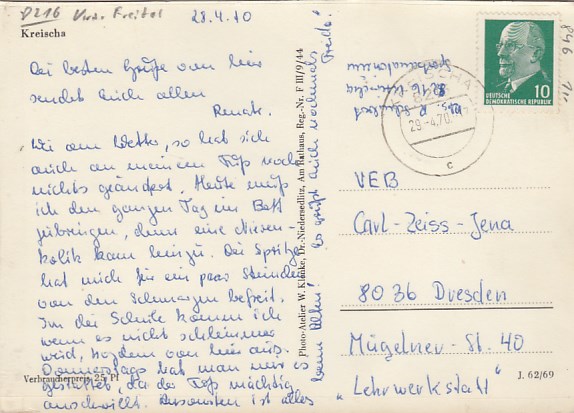 8216 Krs. Freital
28.4.70
Kreischa
Die besten Grüße von hier
sendet Euch allen
Renate.
Wie am Wetter, so hat sich
auch an meinem Fuß noch
nichts geändert. Heute muß
ich den ganzen Tag im Bett
zubringen, denn eine Nieren-
kolik kam hinzu. Die Spritze
hat mich für ein paar Stunden
von den Schmerzen befreit.
In die Schule kann ich
wenn es nicht schlimmer
wird, trotzdem von hier aus.
Donnerstags hat man mir es
gestattet, da der Fuß mächtig
anschwillt. Ansonsten ist alles
beim Alten! Es grüßt Euch nochmals
Verbraucherpreis 25 Pf
Photo-Atelier W. Klimke, Dr.-Niedersedlitz, Am Rathaus, Reg.-Nr. F III/9/44
Abs. R.
8216 Kreischa
Sanatorium
KREISCHA
29.-4.70
c
DEUTSCHE
DEMOKRATISCHE REPUBLIK
10
VEB
Carl-Zeiss-Jena
8036 Dresden
Mügelner-St. 40
"Lehrwerkstatt"
J. 62/69